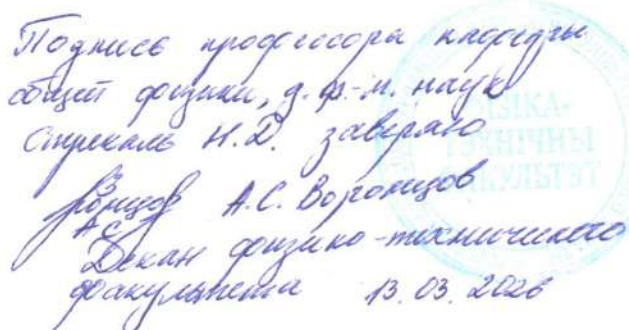 Подпись профессора кафедры
общей физики, д.ф.-м. наук
Стрекаль Н.Д. заверяю
А.С. Воронцов
Декан физико-технического
факультета 13.03.2026
ФІЗІКА-
ТЭХНІЧНЫ
ФАКУЛЬТЭТ